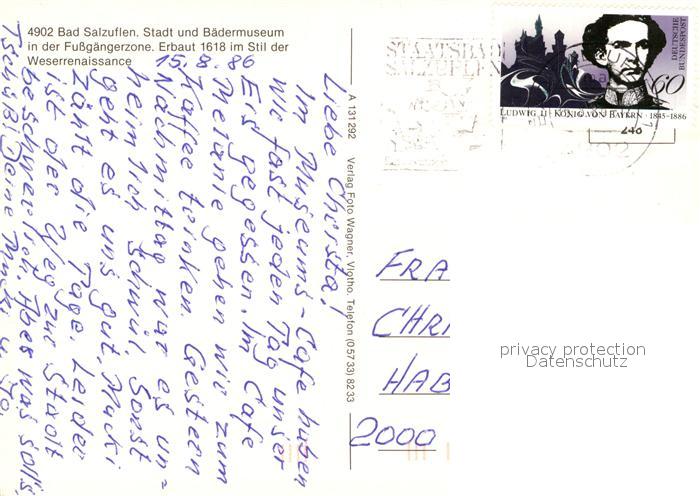 4902 Bad Salzuflen. Stadt und Bädermuseum
in der Fußgängerzone. Erbaut 1618 im Stil der
Weserrenaissance
15.8.86
Liebe Christa!
Im Museums-Cafe haben
wir fast jeden Tag unser
Eis gegessen. Im Cafe
Melanie gehen wir zum
Kaffee trinken. Gestern
Nachmittag war es un=
heimlich schwül. Sonst
geht es uns gut, Mucki
zählt die Tage. Leider
ist der Weg zur Stadt
beschwerlich. Aber was solls.
Tschüß! Deine Mucki u.
A 131 292 Verlag Foto Wagner, Vlotho, Telefon (05733) 8233
STAATSBAD
SALZUFLEN
DEUTSCHE
BUNDESPOST
60
LUDWIG II · KÖNIG VON BAYERN · 1845-1886
FRA
CHRI
HAB
2000
privacy protection
Datenschutz